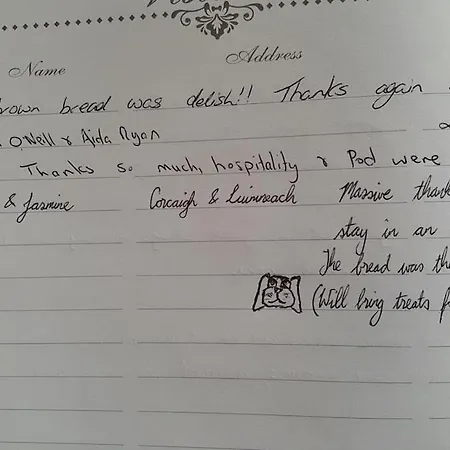 Name Address
brown bread was delish!! Thanks again
O'Neill & Ajda Ryan
Thanks so much, hospitality & Pod were
& Jasmine Corcaigh & Luimneach Massive thank
stay in an
The bread was th
(Will bring treats f